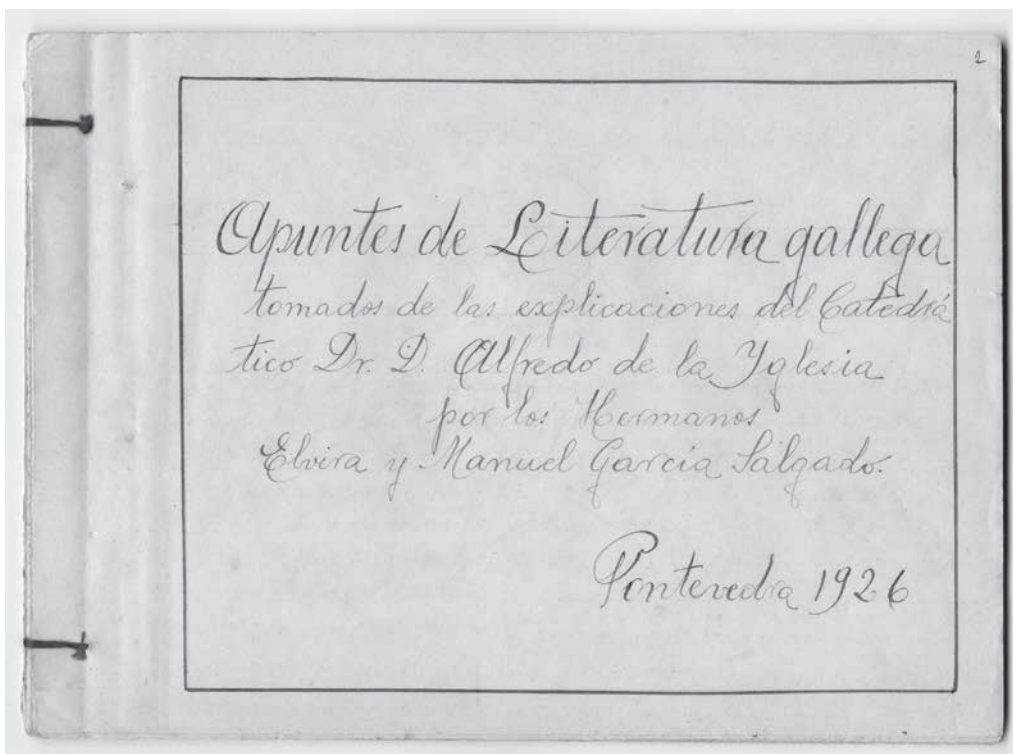 2
Apuntes de Literatura gallega
tomados de las explicaciones del Catedrá
tico Dr. D. Alfredo de la Yglesia
por los Hermanos
Elvira y Manuel García Salgado.
Pontevedra 1926